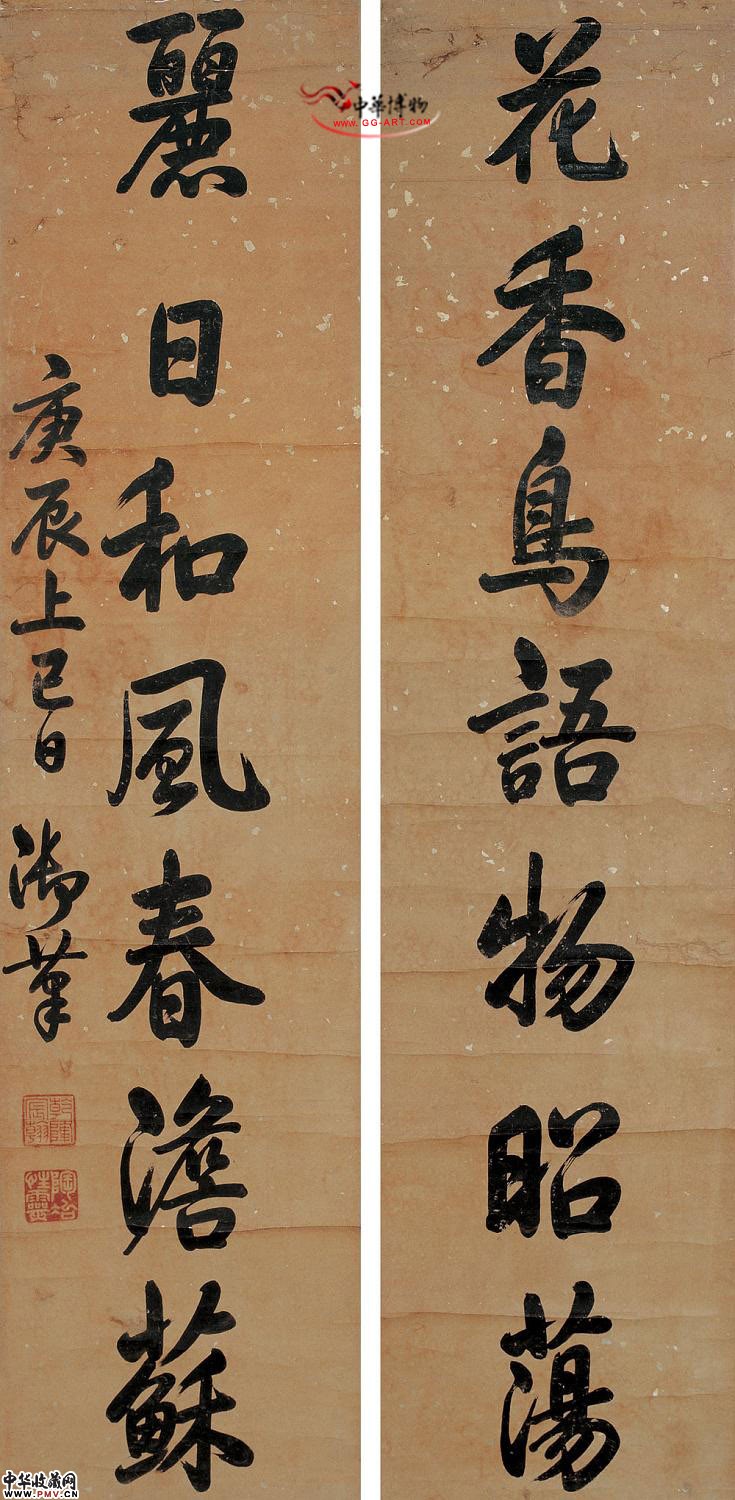 花香鳥語物昭蕩
麗日和風春澹蘇
庚辰上巳日 御筆
乾隆宸翰
陶冶性靈
中華博物
www.GG-ART.COM
中华收藏网
www.PMV.CN